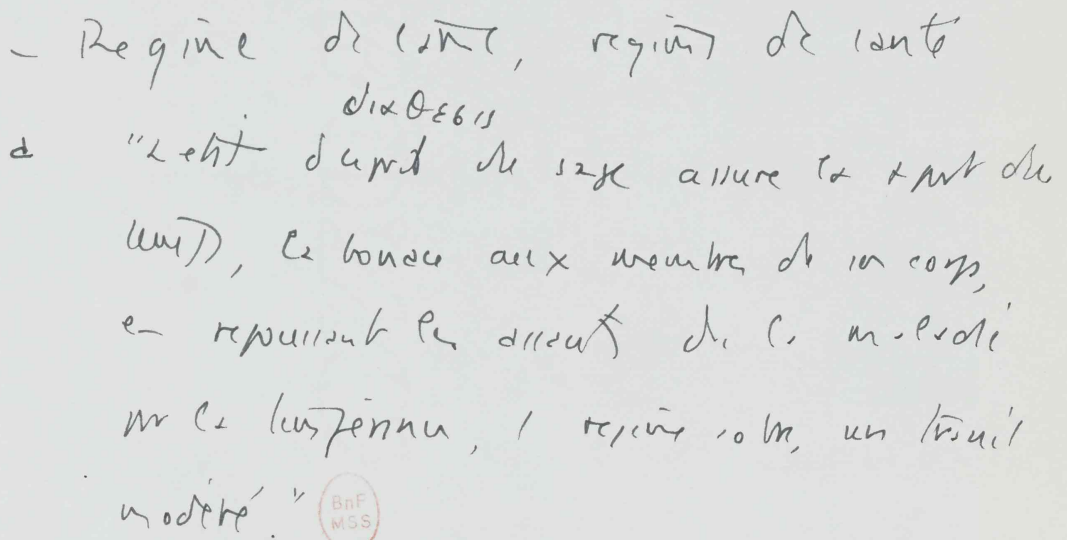 - Regime de l'ame, regime de sante
διαθεσις
d "L'etat d'esprit du sage assure la part du
, la bonace aux membres de son corps,
en repoussant les assauts de la maladie
par la continence, 1 regime sobre, un travail
modéré."
BnF
MSS